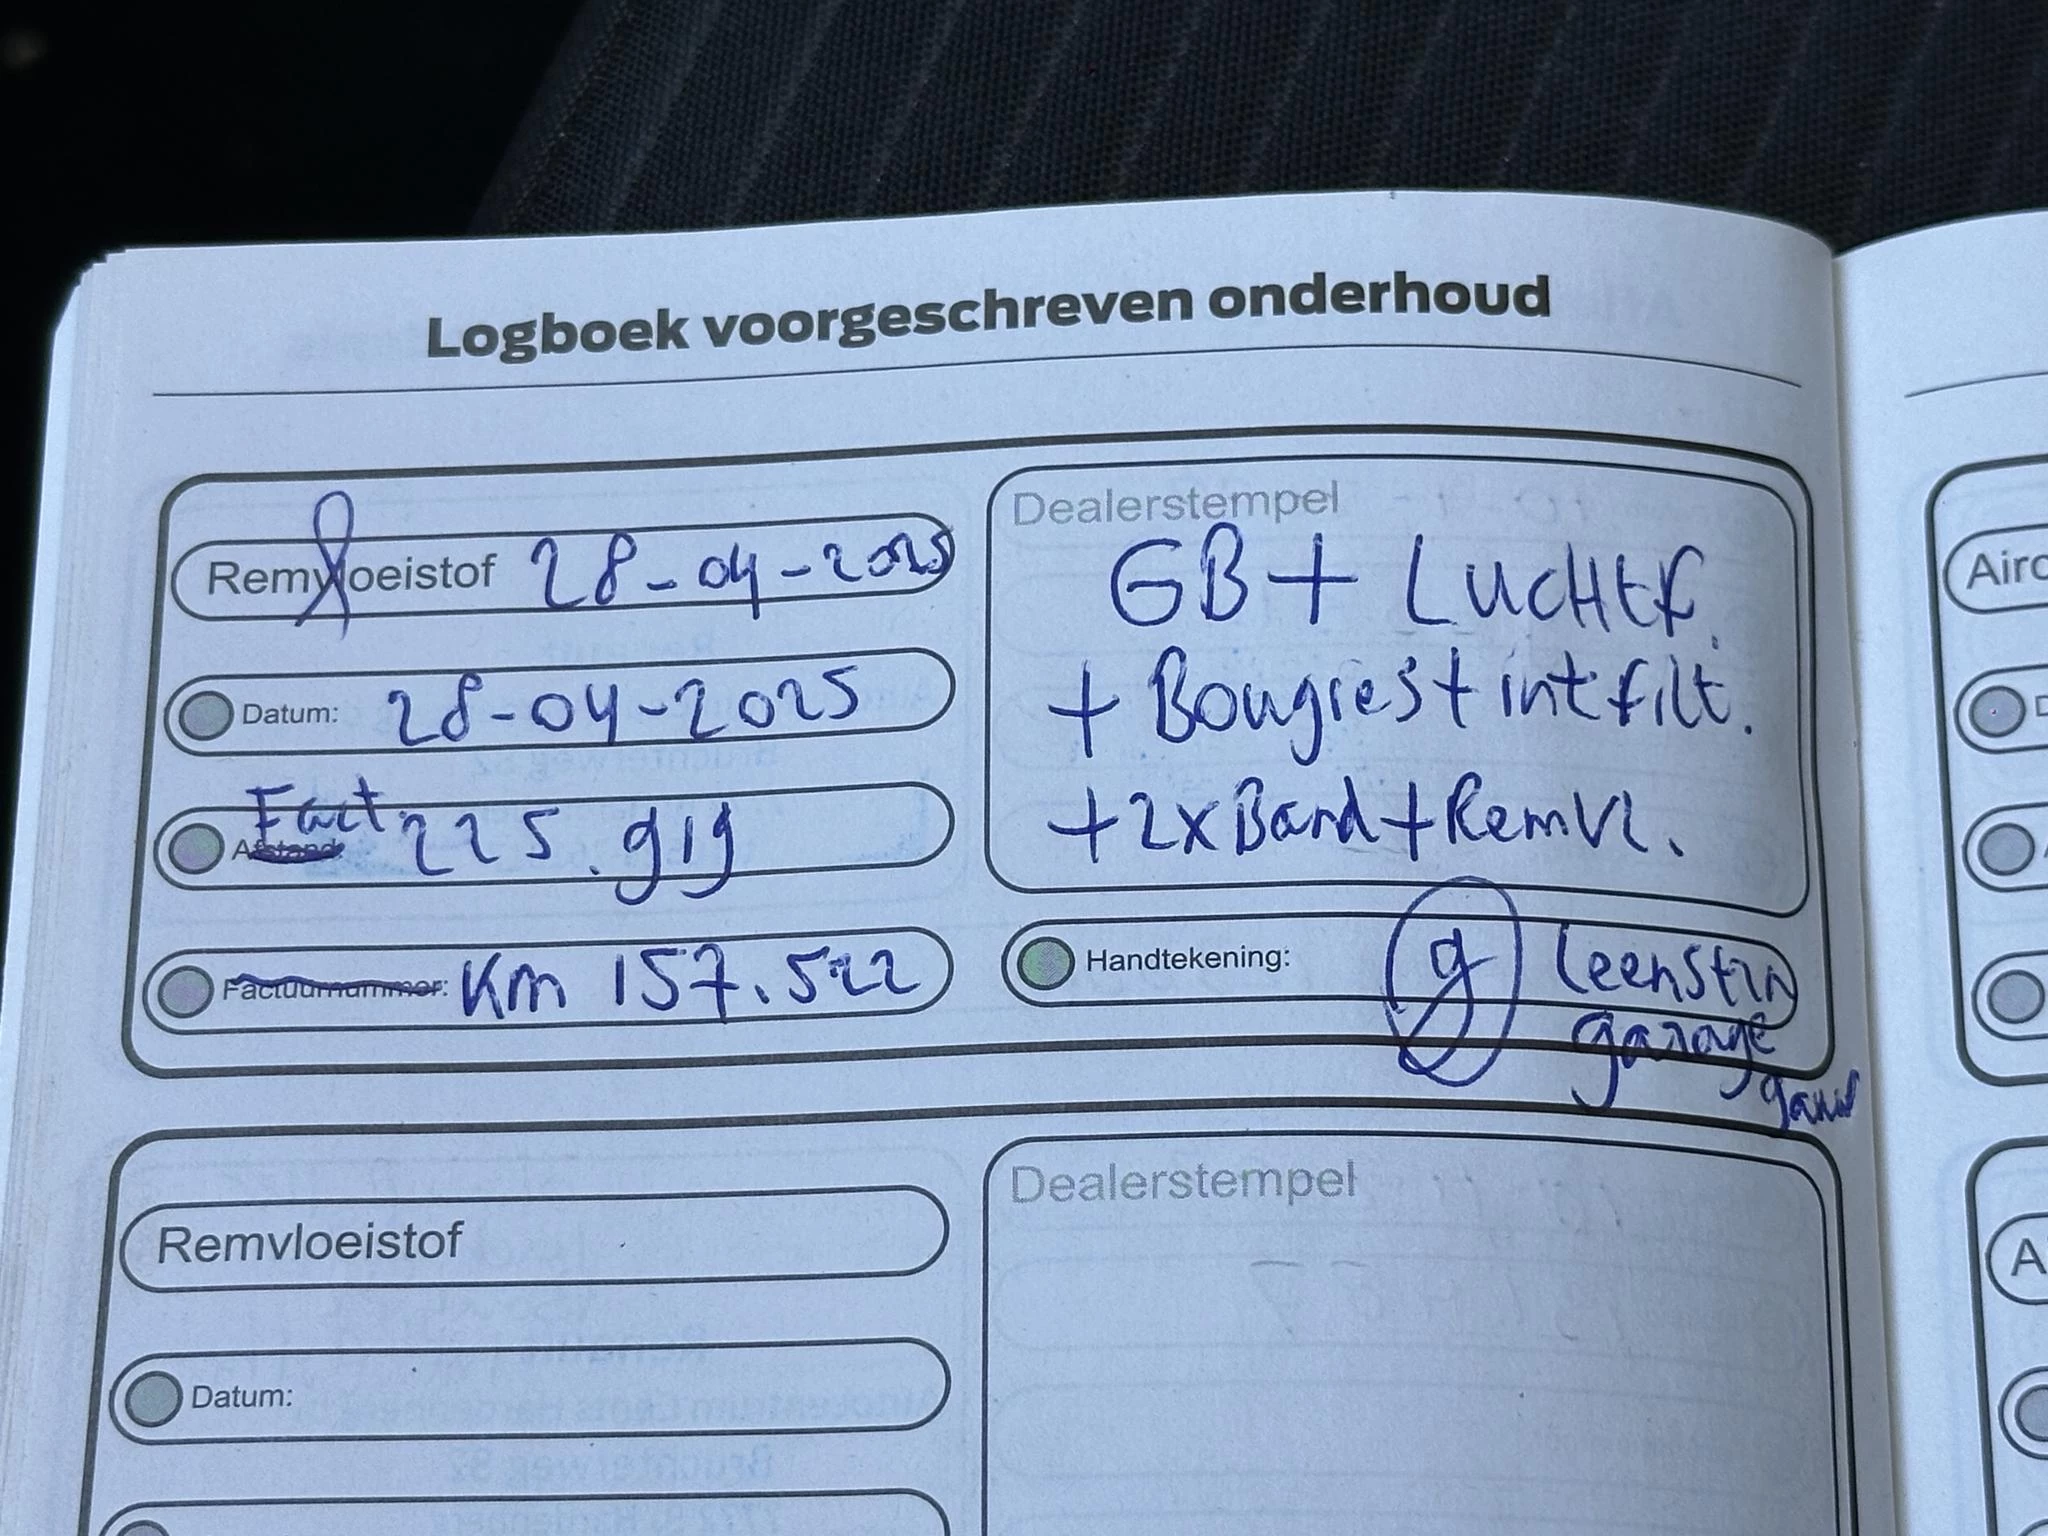 Logboek voorgeschreven onderhoud
Remvloeistof 28-04-2025
Datum: 28-04-2025
Fact. 225.919
Afstand:
Factuurnummer: Km 157.522
Dealerstempel
GB + Luchtf.
+ Bougies + intfilt.
+ 2x Band + Remvl.
Handtekening:
garage
Remvloeistof
Datum:
Dealerstempel